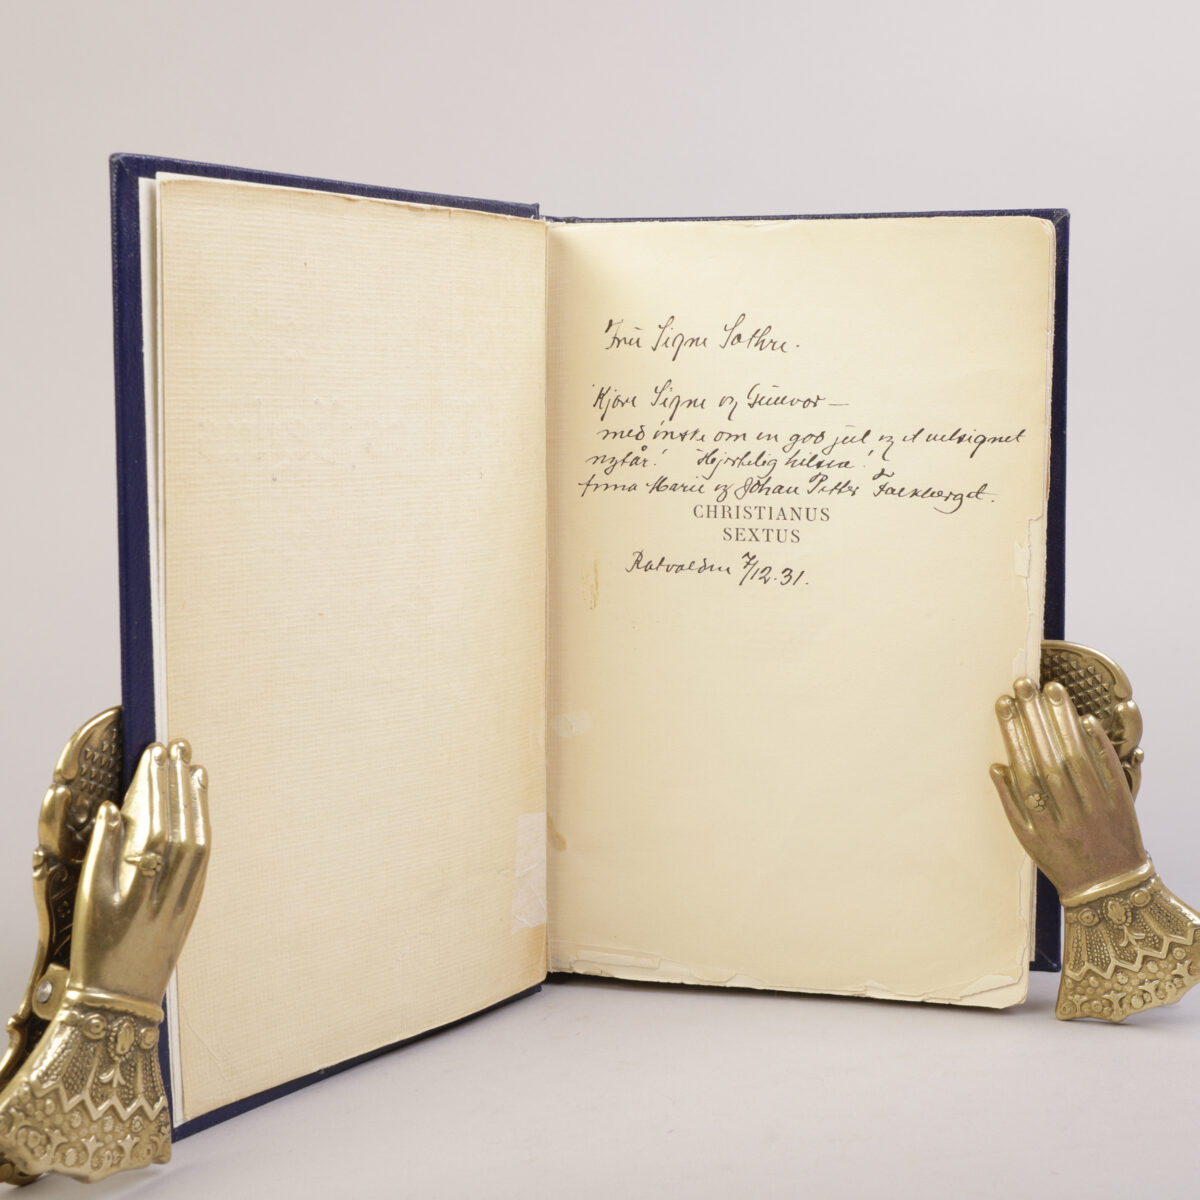 Fru Signe Sothre.
Kjære Signe og Gunvor —
med ønske om en god jul og et velsignet
nytår! Hjertelig hilsen!
Anna Marie og Johan Petter Falkberget.
CHRISTIANUS
SEXTUS
Ratvolden 7/12.31.